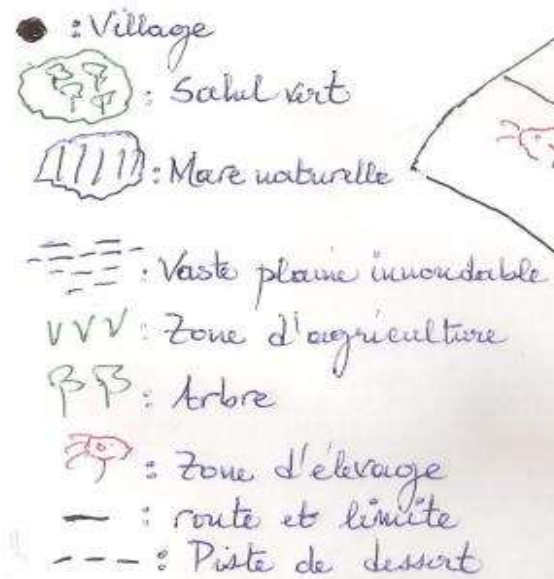 : Village
: Sahel vert
: Mare naturelle
: Vaste plaine innondable
VVV : Zone d'agriculture
: Arbre
: Zone d'élevage
— : route et limite
--- : Piste de dessert